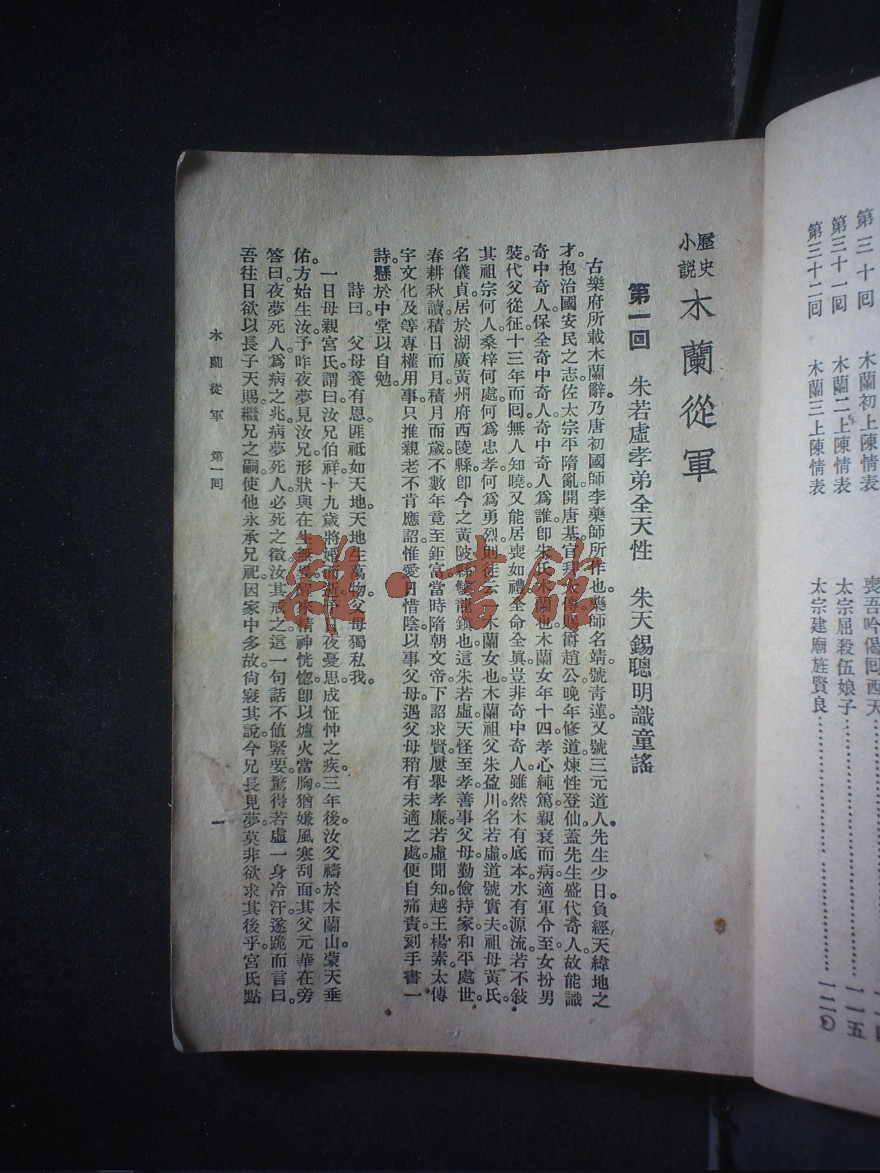 第三十回　木蘭初上陳情表　喪吾吟偈回西天
第三十一回　木蘭二上陳情表　太宗屈殺伍娘子……………一一五
第三十二回　木蘭三上陳情表　太宗建廟旌賢良……………一二〇
歷史小說 木蘭從軍
第一回　朱若虛孝弟全天性　朱天錫聰明識童謠
古樂府所載木蘭辭。乃唐初國師李藥師所作也。藥師名靖。號靑蓮。又號三元道人。先生少日負經天緯地之
才。抱治國安民之志。佐太宗平隋亂。開唐基。官拜太傅。賜爵趙公。晚年修道煉性登仙。蓋先生盛代奇人。故能識
奇中奇人。保全奇中奇人。奇中奇人爲誰。卽朱氏木蘭也。木蘭女年十四。孝心純篤。親衰而病。適軍令至。女扮男
裝。代父從征。十三年而囘。無人知曉。又能居喪如禮。全命全眞。豈非奇中奇人。雖然木有底本。水有源流。若不敍
其祖宗何人。桑梓何處。何爲忠孝。何爲勇烈。則徒云木蘭女也。木蘭祖父朱盈川。名若虛。道號實夫。祖母黃氏。
名儀貞。居於湖廣黃州府西陵縣。卽今之黃陂縣雙龍鎮也。這朱若虛天性至孝。善事父母。勤儉持家。和平處世。
春耕秋讀。積日而月。積月而歲。不數年竟至鉅富。當時隋朝文帝。下詔求賢。屢舉孝廉。若虛聞知越王楊素。太傅
宇文化及等專權用事。只推親老不肯應詔。惟愛日惜陰。以事父母。遇父母稍有未適之處。便自痛責。刻手書一
詩。懸於中堂以自勉。
詩曰。　父母養有恩。匪祗如天地。天地生萬物。父母獨私我。
一日母親宮氏。謂曰。汝兄伯祥。十九歲將婚而逝。予日夜憂思。成怔忡之疾。三年後。汝父禱於木蘭山。蒙天垂
佑。方始生汝。予昨夜夢見汝兄。形狀與在生無異。醒來精神恍惚。卽以爐火當胸。猶嫌風寒刮面。其父元華在旁
答曰。夜夢死人。爲病之兆。病夢死人。必死之徵。汝其戒之。這一句話不値緊要。驚得若虛一身冷汗。遂跪而言曰。
吾往日欲以長子天賜。繼兄之嗣。使他永承兄祀。因家中多故。尙寢其說。今兄長見夢。莫非欲求其後乎。宮氏點
木蘭從軍　第一回　一
雜·書館